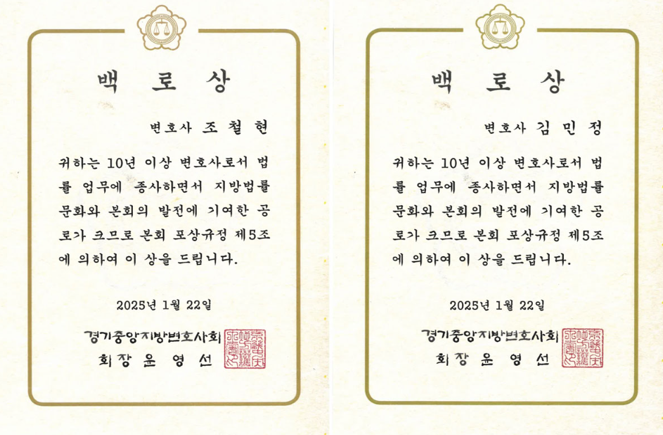 백 로 상
변호사 조 철 현
귀하는 10년 이상 변호사로서 법
률 업무에 종사하면서 지방법률
문화와 본회의 발전에 기여한 공
로가 크므로 본회 포상규정 제5조
에 의하여 이 상을 드립니다.
2025년 1월 22일
경기중앙지방변호사회
회 장 윤 영 선
백 로 상
변호사 김 민 정
귀하는 10년 이상 변호사로서 법
률 업무에 종사하면서 지방법률
문화와 본회의 발전에 기여한 공
로가 크므로 본회 포상규정 제5조
에 의하여 이 상을 드립니다.
2025년 1월 22일
경기중앙지방변호사회
회 장 윤 영 선